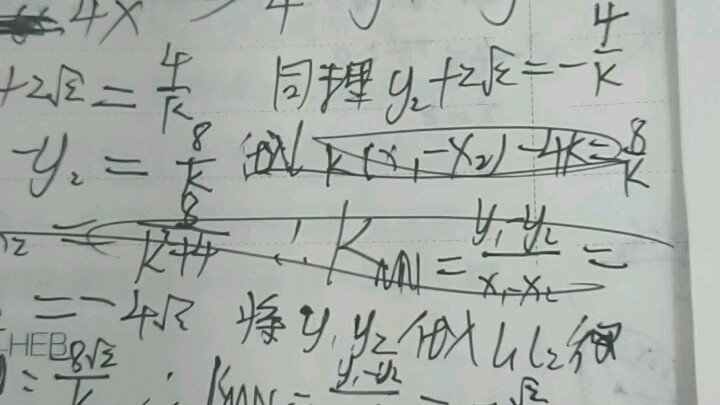 4x
+2√2 = 4/k 同理 y₂+2√2 = -4/k
-y₂ = 8/k 代入 k(x₁-x₂)-4k = 8/k
₂ = 8/k²+4 ∴ K_MN = y₁-y₂/x₁-x₂ =
= -4√2 将 y₁ y₂ 代入 l₁ l₂ 得
HEB -8√2/k ∴ K_MN = y₁-y₂ = -√2